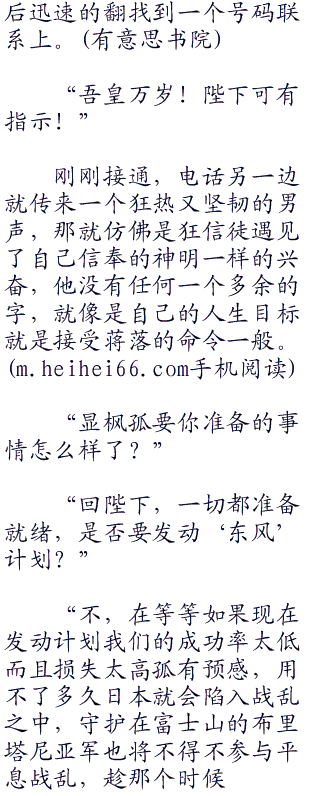 后迅速的翻找到一个号码联
系上。(有意思书院)
“吾皇万岁！陛下可有
指示！”
刚刚接通，电话另一边
就传来一个狂热又坚韧的男
声，那就仿佛是狂信徒遇见
了自己信奉的神明一样的兴
奋，他没有任何一个多余的
字，就像是自己的人生目标
就是接受蒋落的命令一般。
(m.heihei66.com手机阅读)
“显枫孤要你准备的事
情怎么样了？”
“回陛下，一切都准备
就绪，是否要发动‘东风’
计划？”
“不，在等等如果现在
发动计划我们的成功率太低
而且损失太高孤有预感，用
不了多久日本就会陷入战乱
之中，守护在富士山的布里
塔尼亚军也将不得不参与平
息战乱，趁那个时候